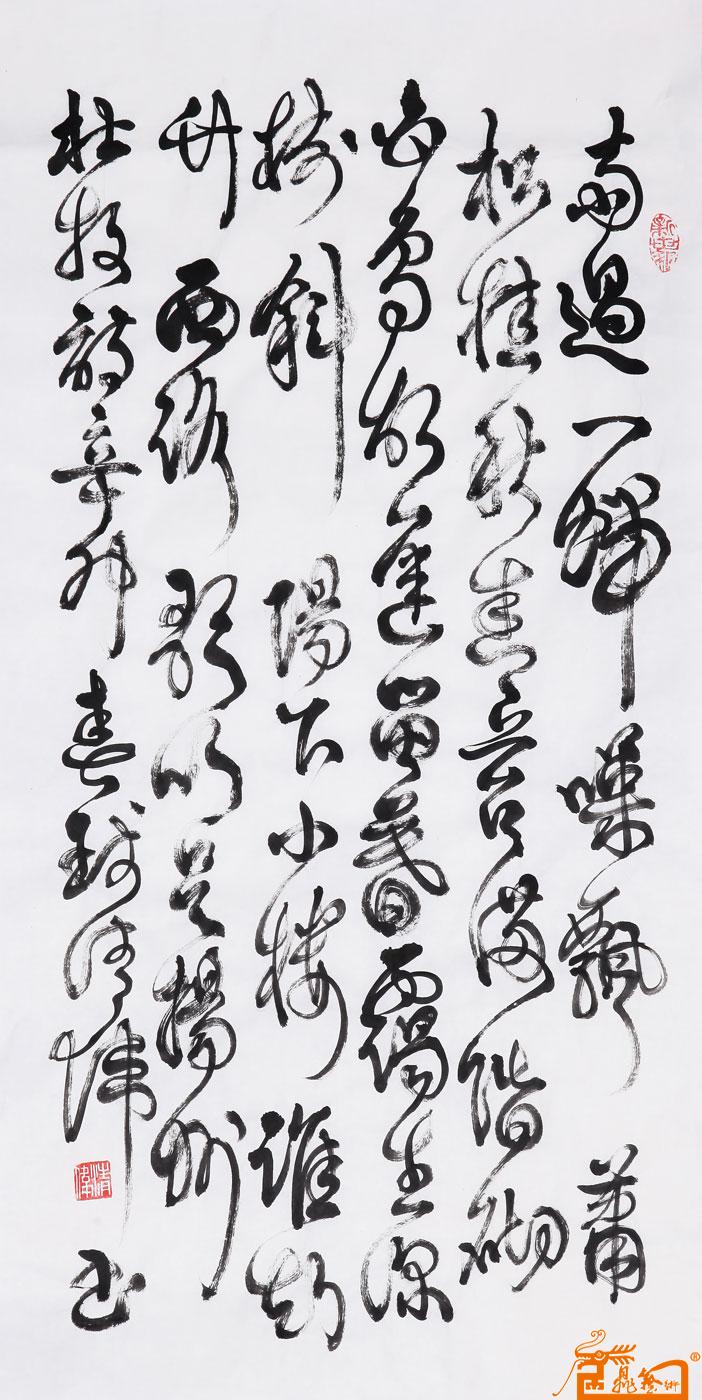 雨過一蟬噪飄蕭
松桂秋青苔滿階砌
白鳥故遲留暮靄生深
樹斜陽下小樓誰知
竹西路歌吹是揚州
杜牧詩辛卯春清偉書
清偉